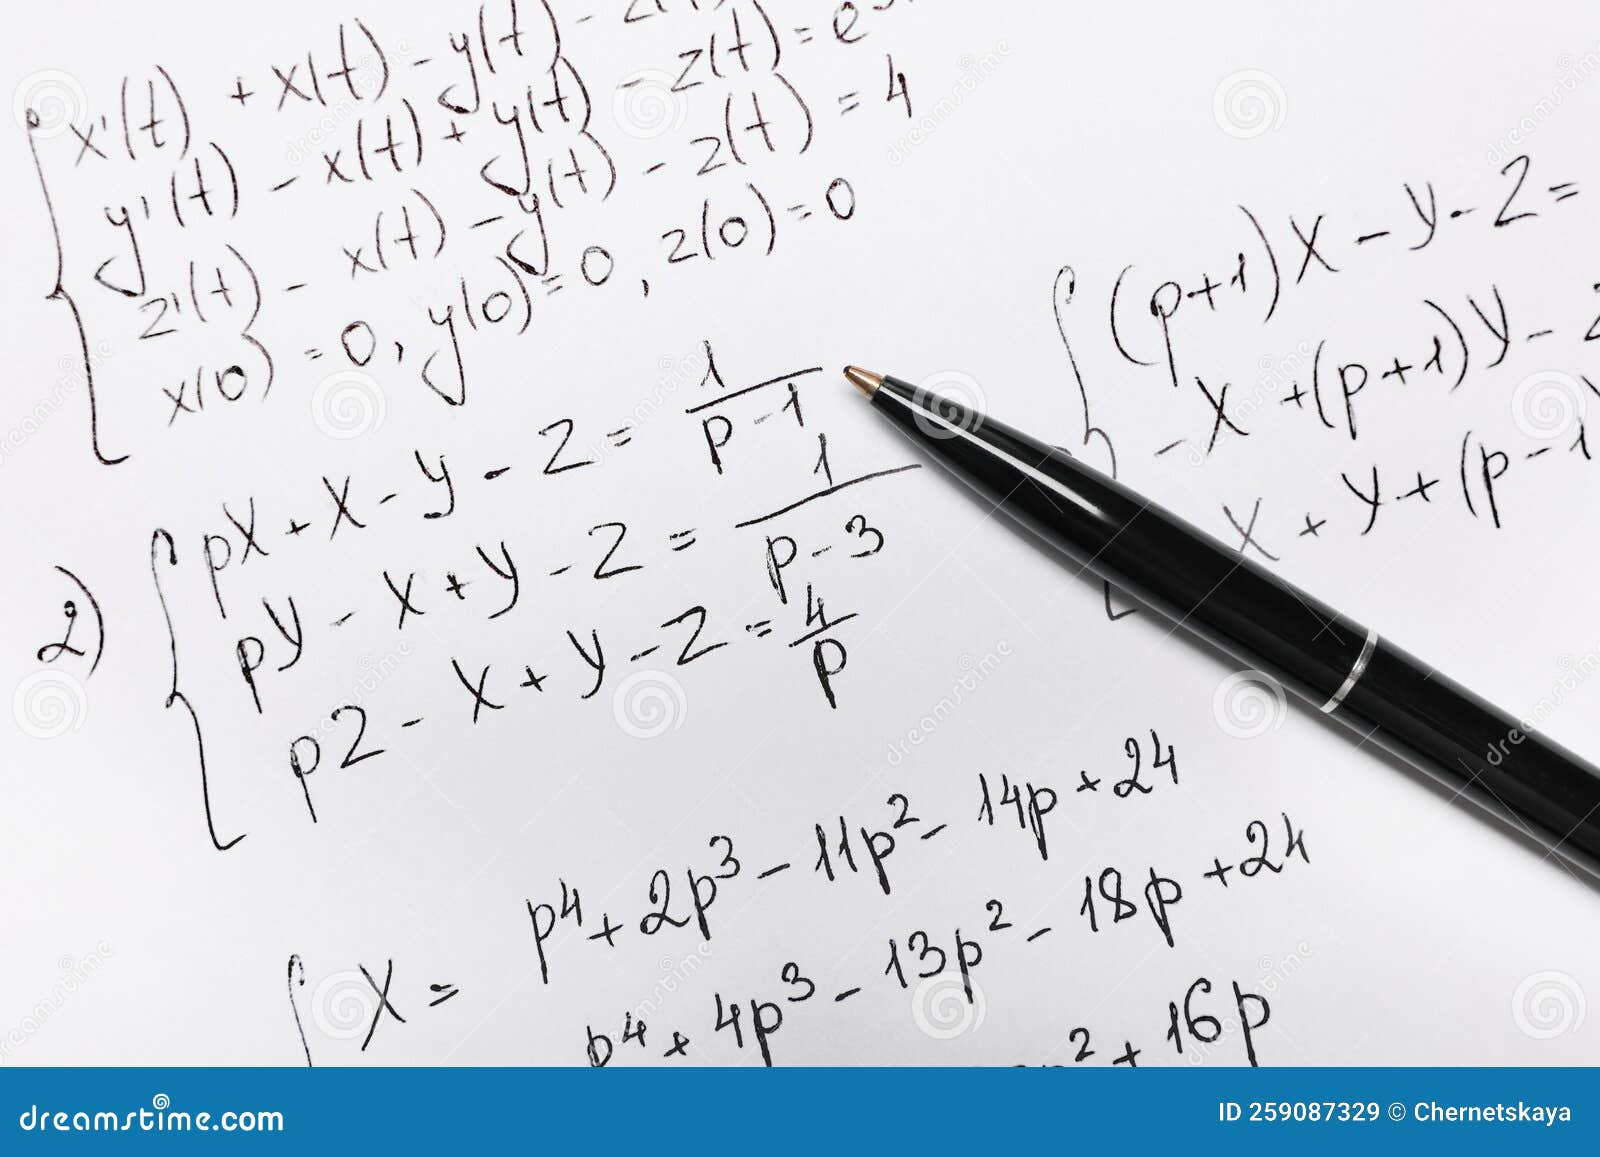 x'(t) + x(t) - y(t) - z(t)
y'(t) - x(t) + y(t) - z(t) = e
z'(t) - x(t) - y(t) - z(t) = 4
x(0) = 0, y(0) = 0, z(0) = 0
2)
pX + X - Y - Z = 1/(p - 1)
pY - X + Y - Z = 1/(p - 3)
pZ - X + Y - Z = 4/p
(p+1)X - Y - Z =
- X + (p+1)Y - Z
X + Y + (p - 1
X = p⁴ + 2p³ - 11p² - 14p + 24
p⁴ + 4p³ - 13p² - 18p + 24
p² + 16p
dreamstime.com
ID 259087329 © Chernetskaya